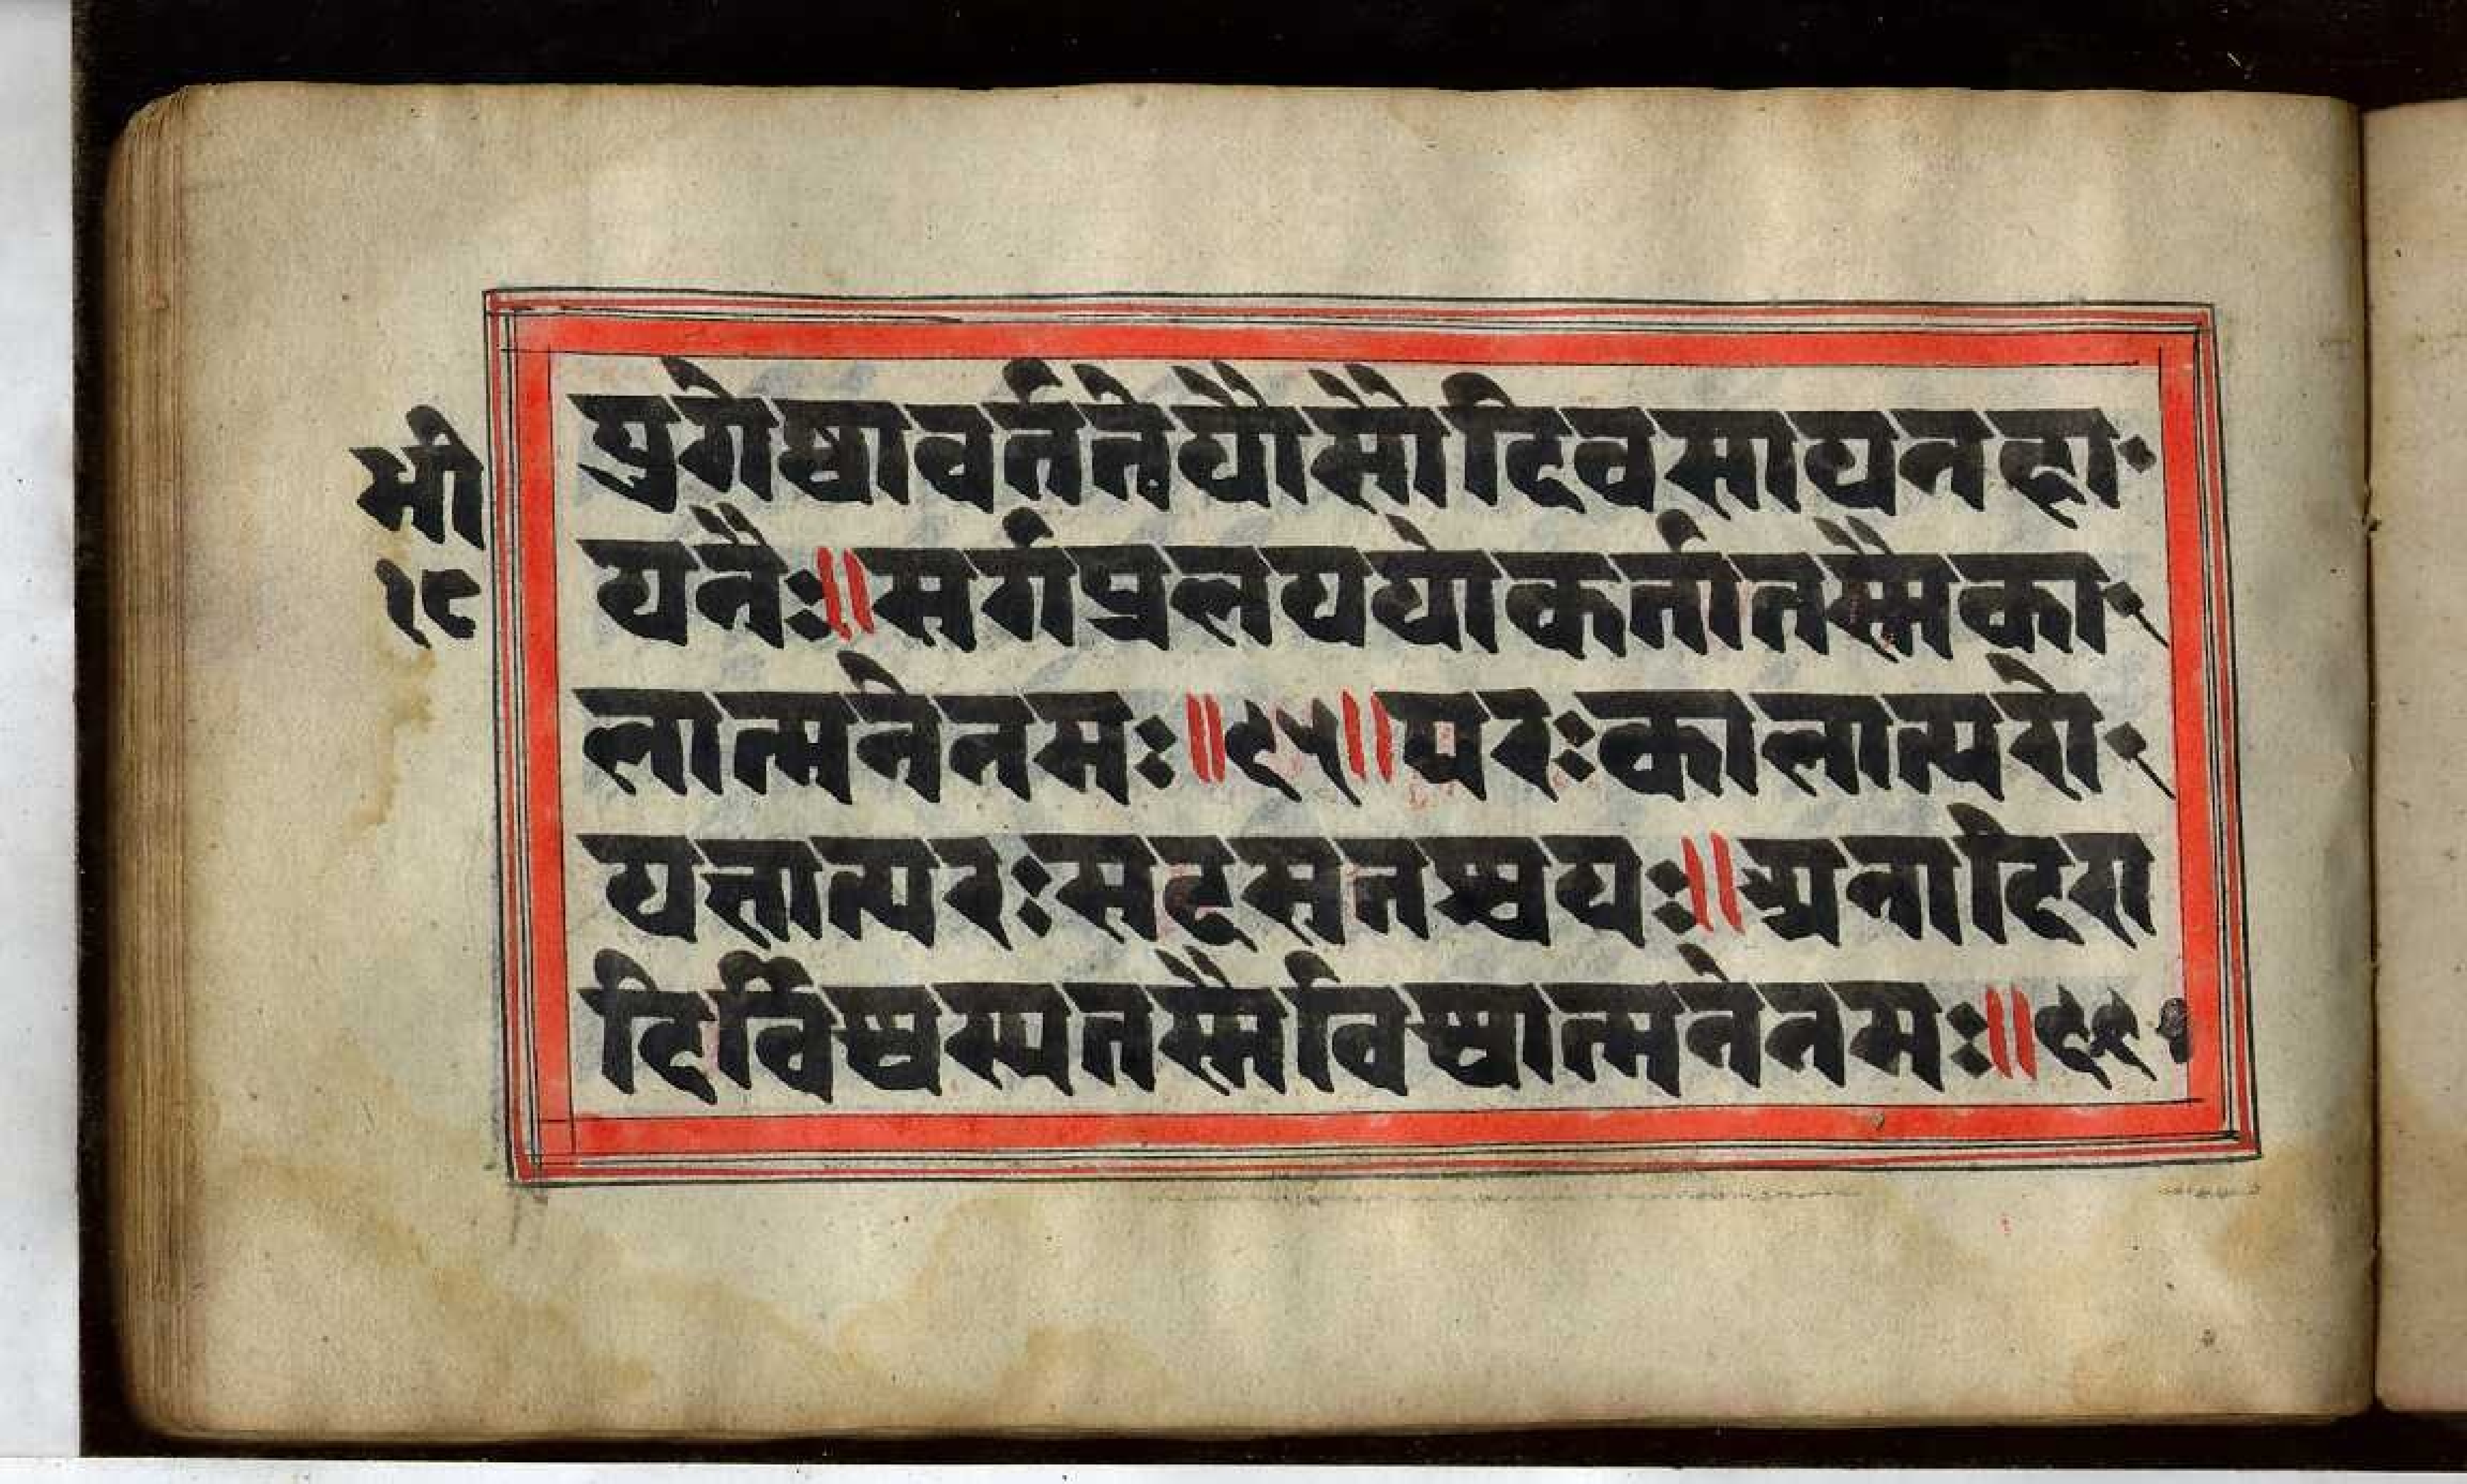 भी
१८
युगेष्वावर्ततेयौसौदिवसायनहा
यनैः॥सर्गप्रलययोकर्तातस्मैका
लात्मनेनमः॥९५॥परःकालात्परो
यज्ञात्परःसदसतश्चयः॥अनादिरा
दिर्विश्वस्यतस्मैविश्वात्मनेनमः॥९६